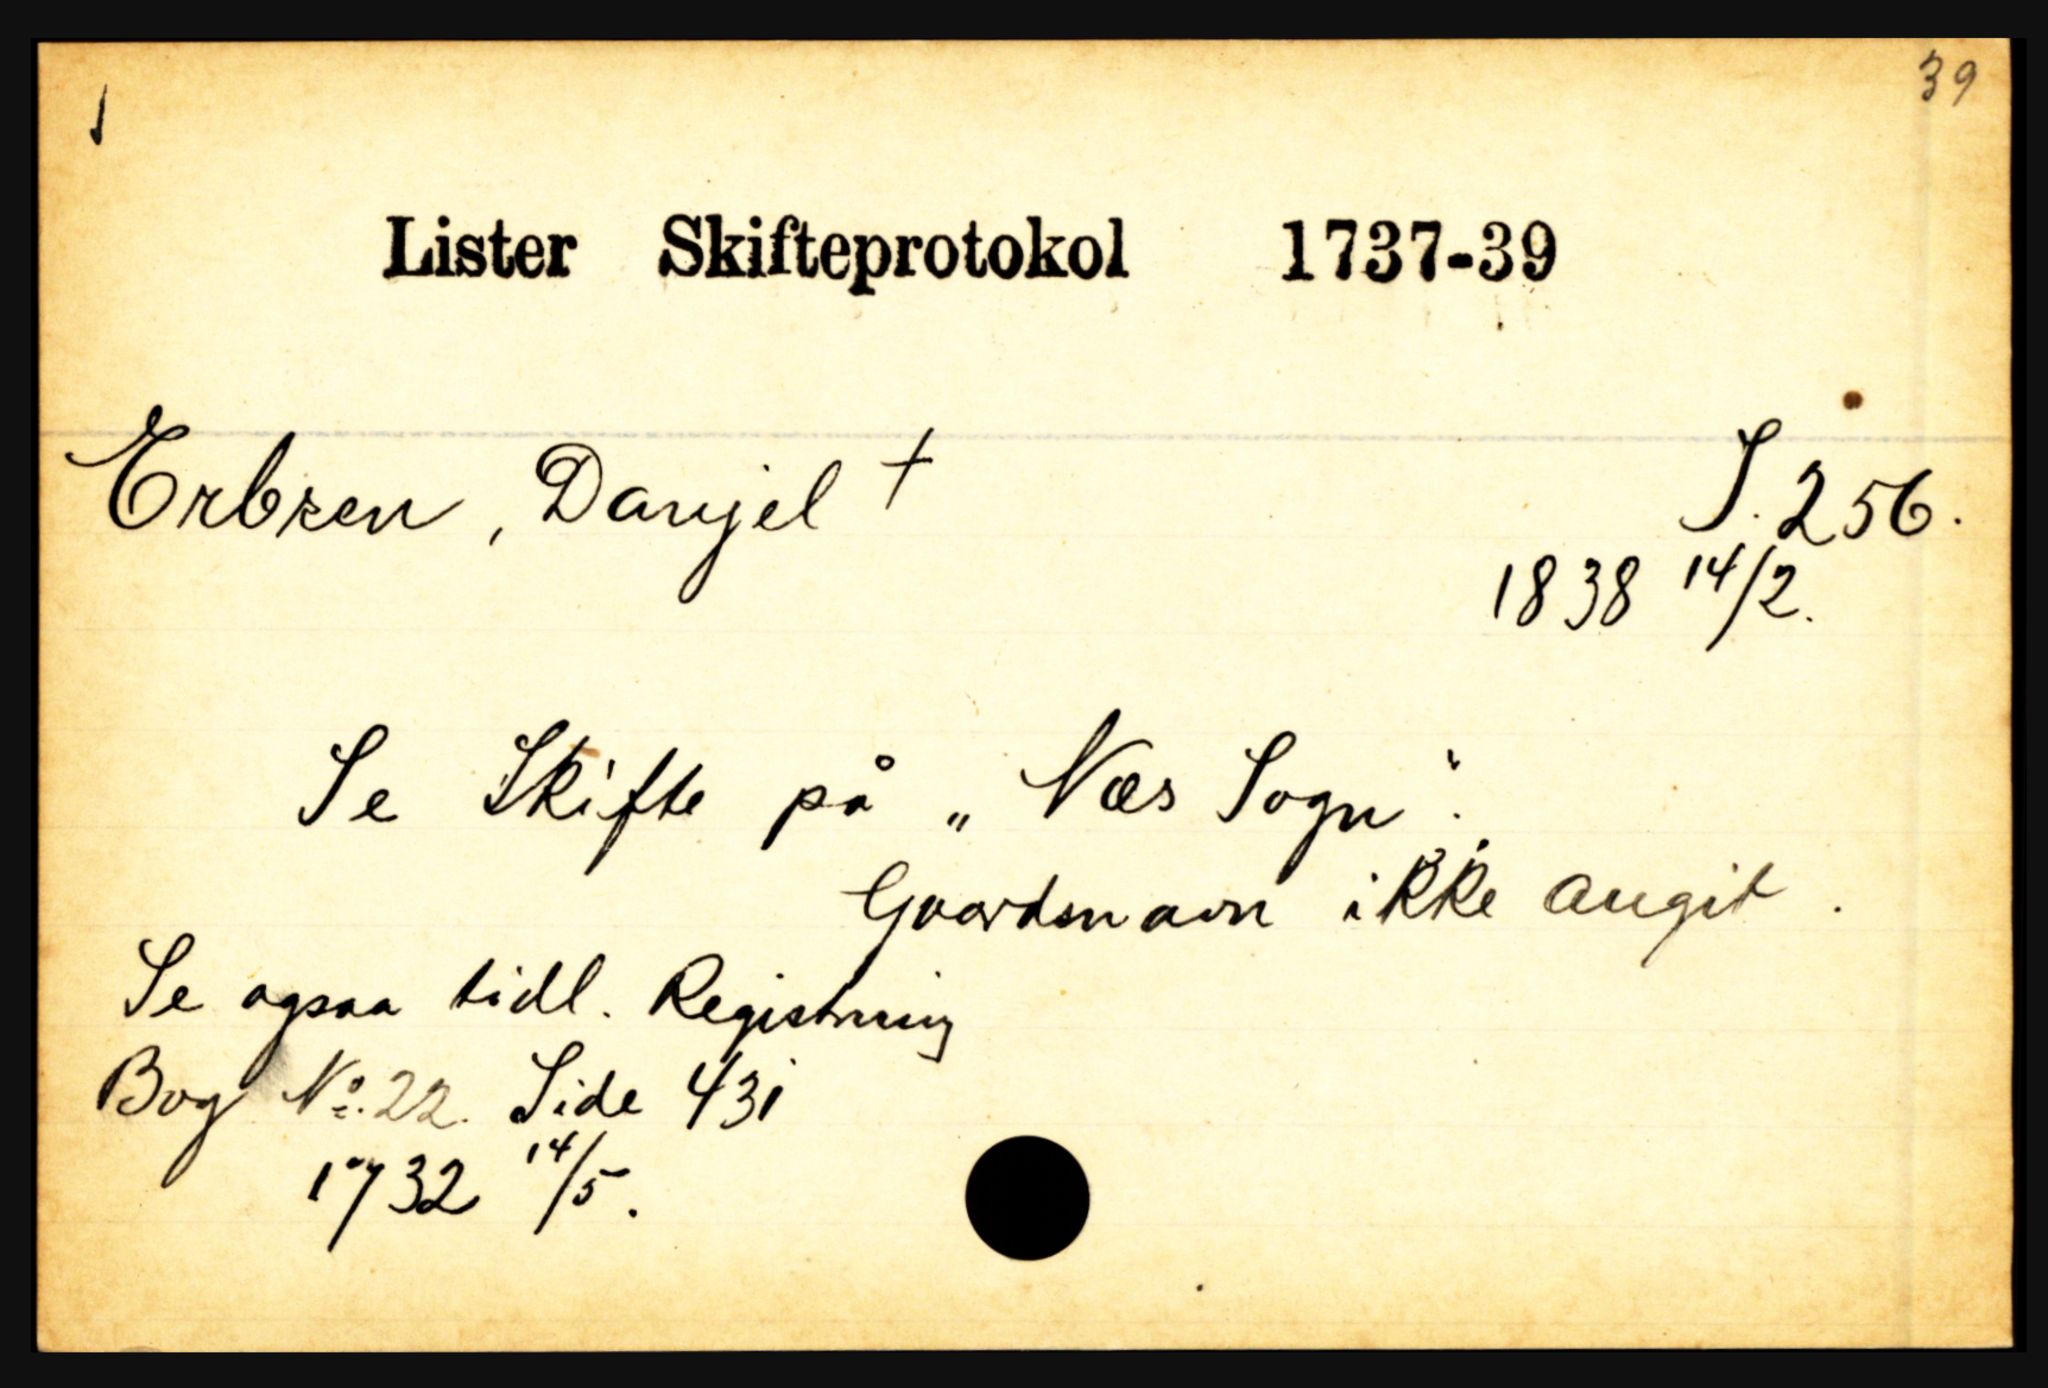 1
39
Lister Skifteprotokol 1737-39
Erbren, Danjel † S. 256.
1838 14/2.
Se Skifte på „Næs Sogn".
Gaardsnavn ikke angit.
Se ogsaa tidl. Registrering
Bog No. 22. Side 431
1732 14/5.